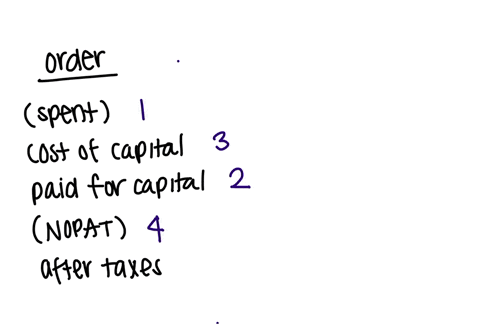 order
(spent) 1
cost of capital 3
paid for capital 2
(NOPAT) 4
after taxes